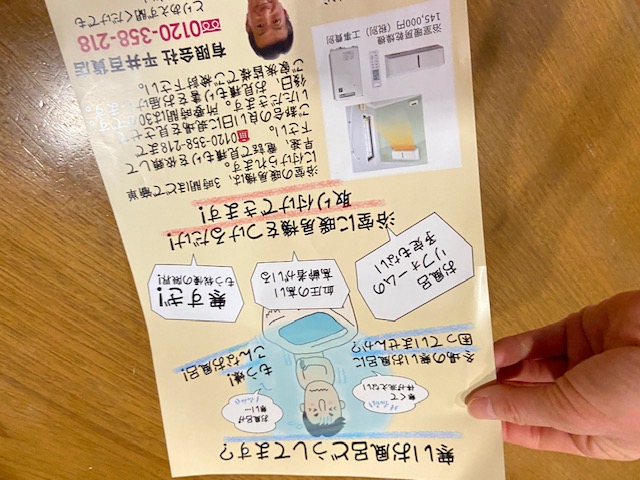 寒いお風呂どうしてます?
お風呂が
寒い…
寒くて
体が洗えない
冬場の寒いお風呂に
困っていませんか?
もう嫌!
こんなお風呂!
お風呂
リフォームの
予定もない
血圧の高い
高齢者がいる
寒すぎ!
もう我慢の限界!
浴室に暖房機をつけるだけ!
取り付けできます!
浴室の暖房機は、3時間ほどで簡単
に付けられます。
早速、電話で見積もりを依頼して
下さい。
0120-358-218まで
ご都合の良い日に現場を見させて
いただきます。所要時間は30分
後日、お見積もり書をお届け
ご家族皆様でご検討下さい。
浴室暖房乾燥機
145,000円(税別)工事費別
有限会社 平井百貨店
0120-358-218
とりあえず聞くだけでも